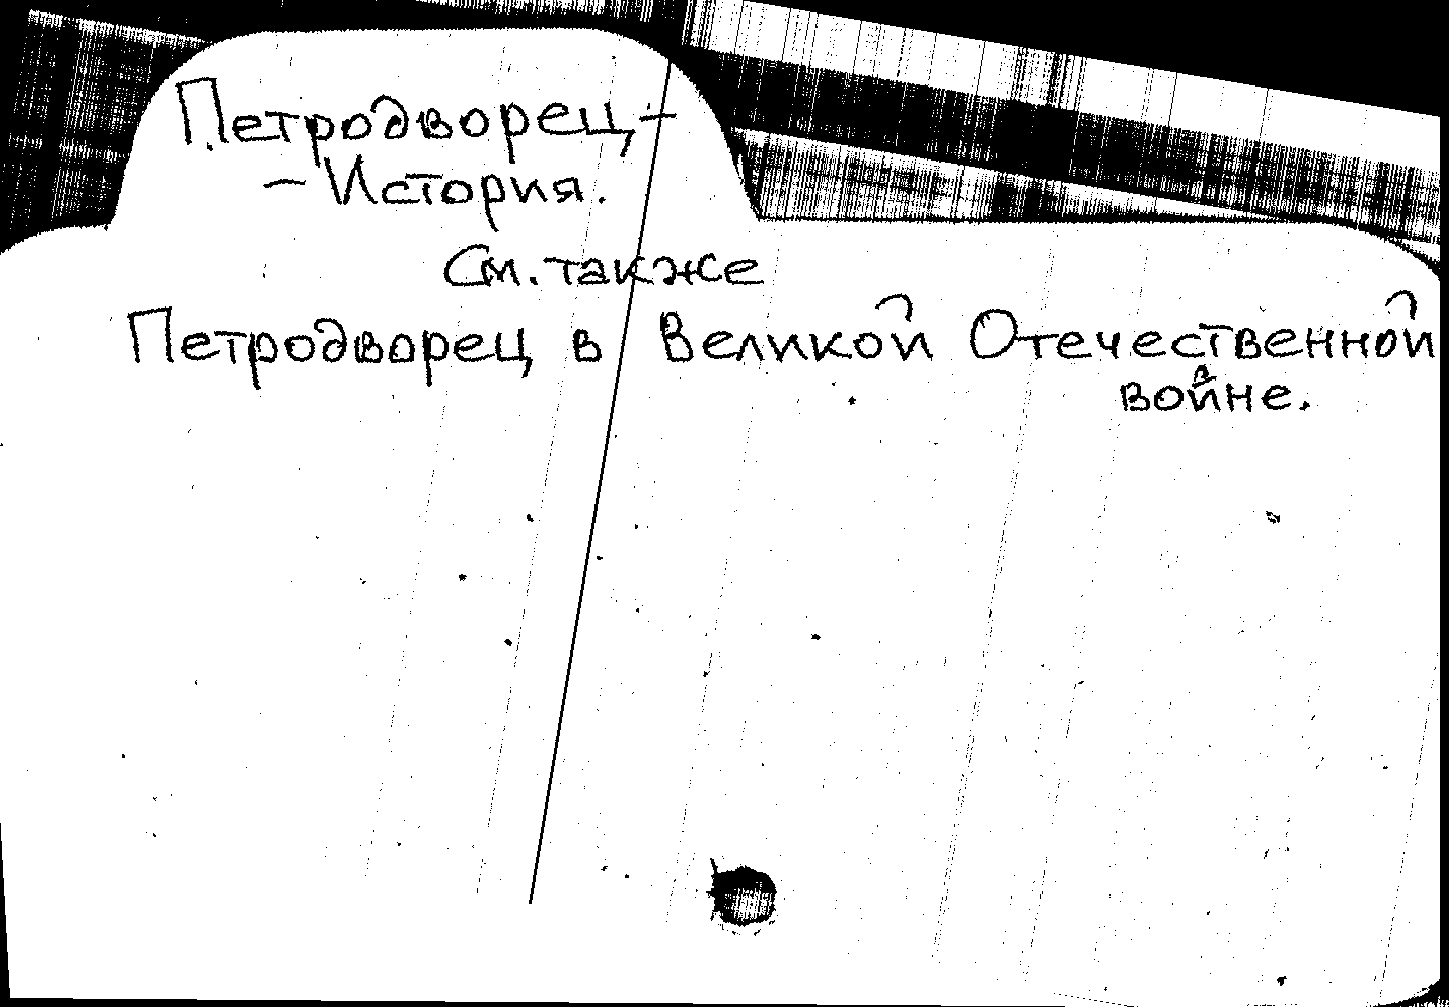 Петродворец,-
- История.
См. также
Петродворец в Великой Отечественной
войне.